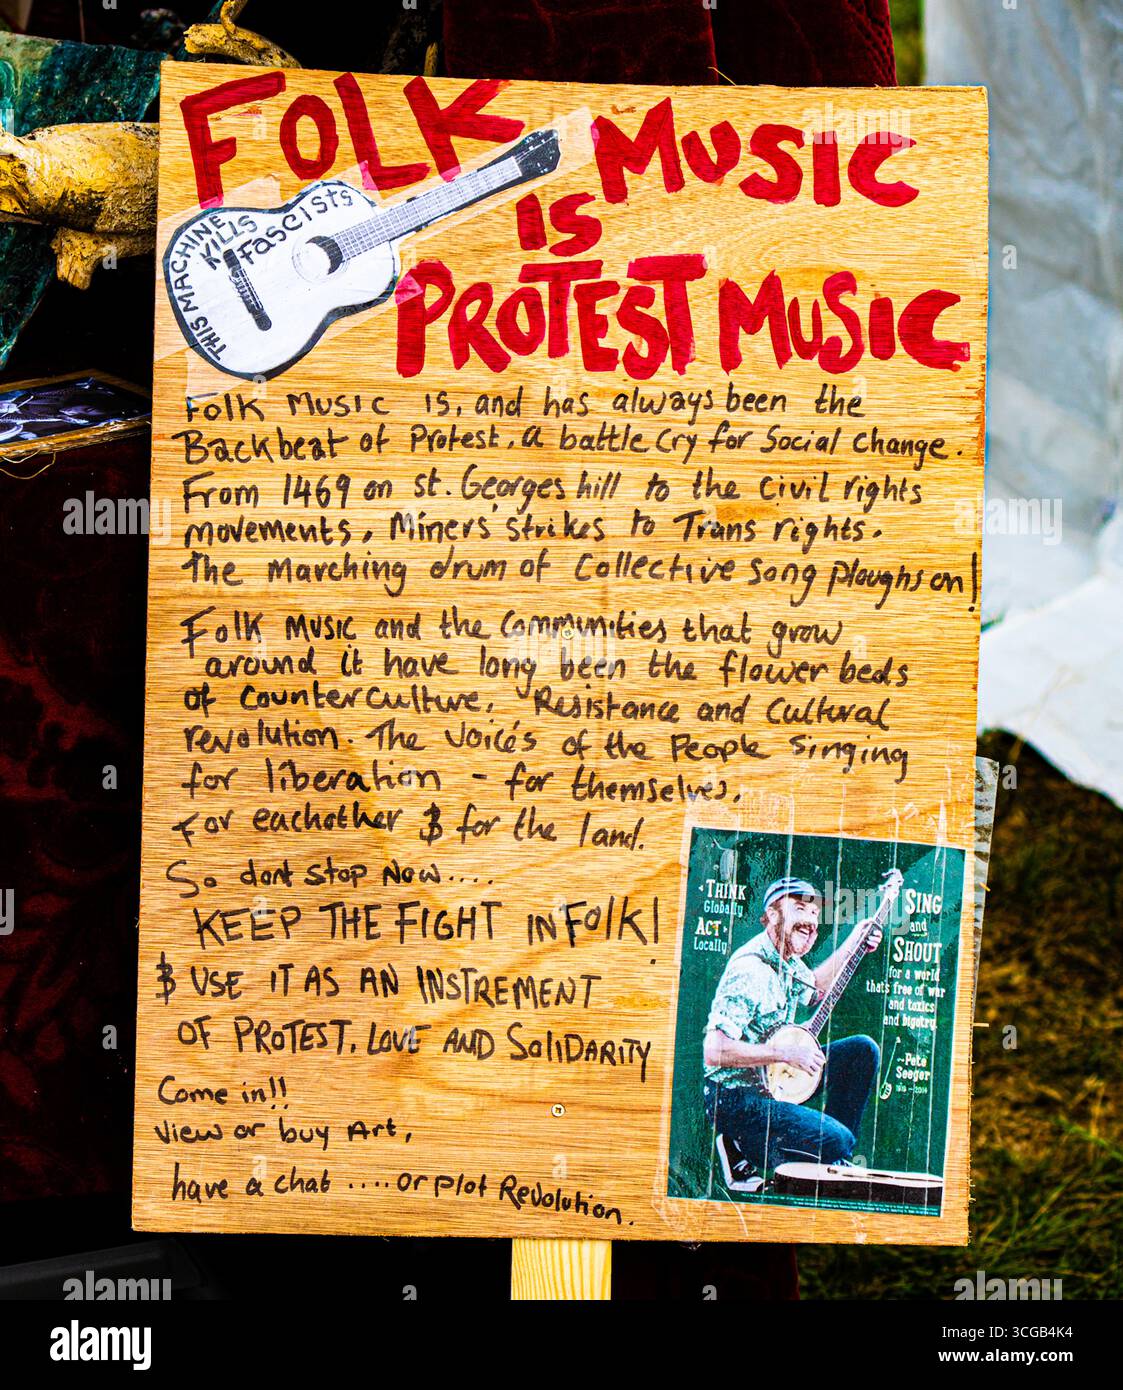 FOLK MUSIC
IS
PROTEST MUSIC
THIS MACHINE
KILLS
FASCISTS
Folk Music is, and has always been the
Backbeat of Protest. A battle cry for Social change.
From 1469 on St. Georges hill to the Civil rights
movements, Miners' strikes to Trans rights.
The marching drum of Collective song ploughs on!
Folk Music and the Communities that grow
around it have long been the flower beds
of Counterculture. Resistance and Cultural
revolution. The voices of the People singing
for liberation - for themselves.
For eachother & for the land.
So dont stop now....
KEEP THE FIGHT IN FOLK!
& USE IT AS AN INSTREMENT
OF PROTEST, LOVE AND SOLIDARITY
Come in!!
View or buy Art,
have a chat .... or plot Revolution.
THINK
Globally
ACT
Locally
SING
and
SHOUT
for a world
thats free of war
and toxics
and bigotry.
~Pete
Seeger
1919 - 2014
alamy
Image ID: 3CGB4K4
www.alamy.com